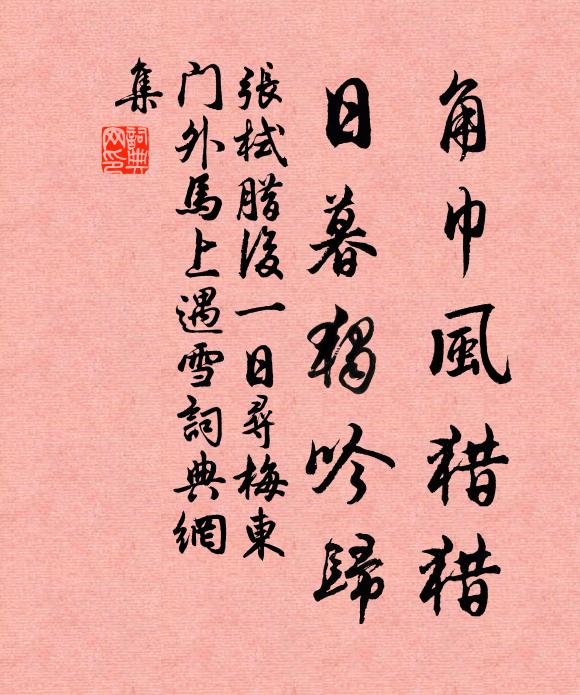 角巾風猎猎
日暮獨吟歸
張栻腊後一日尋梅東
门外馬上遇雪詞典網
集
詞典网印